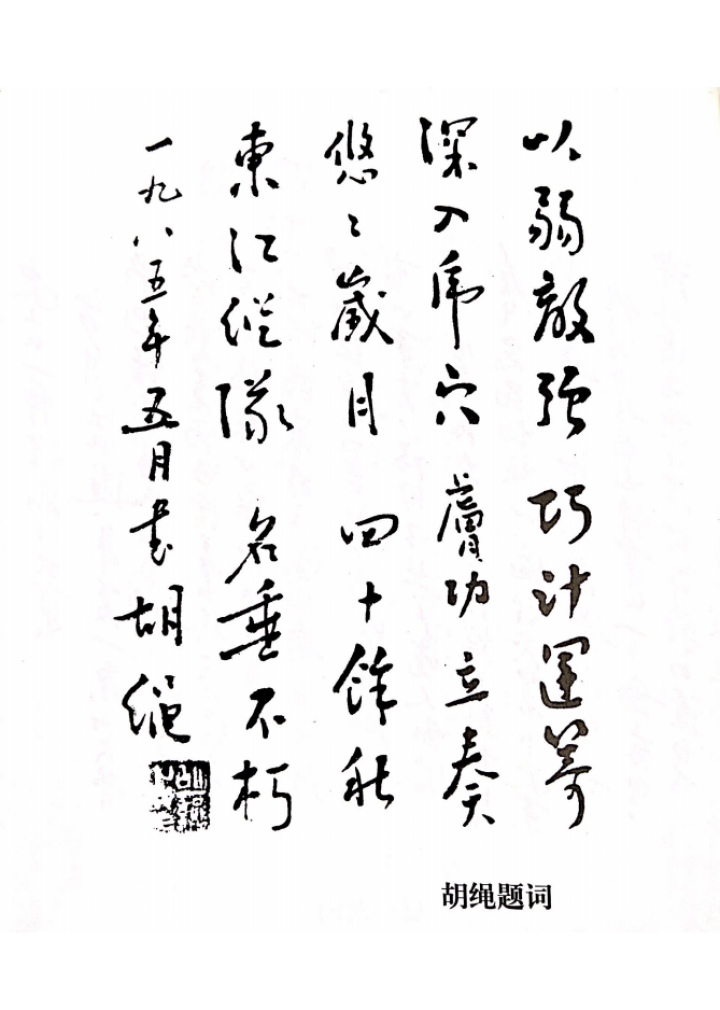 以弱敵强 巧计運筹
深入虎穴 膚功立奏
悠々歲月 四十馀秋
東江縱隊 名垂不朽
一九八五年五月书 胡绳
胡绳题词